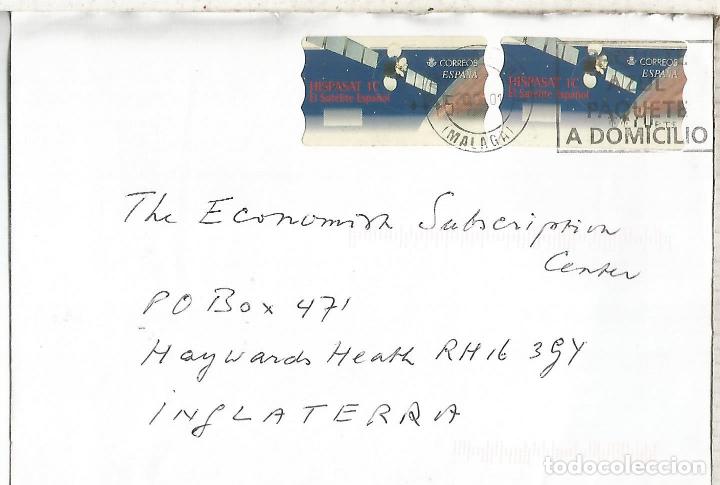 CORREOS
ESPAÑA
HISPASAT 1C
El Satélite Español
CORREOS
ESPAÑA
HISPASAT 1C
El Satélite Español
(MALAGA)
PAQUETE
A DOMICILIO
The Economist Subscription
Center
PO Box 471
Haywards Heath RH16 3GY
INGLATERRA
todocoleccion.net